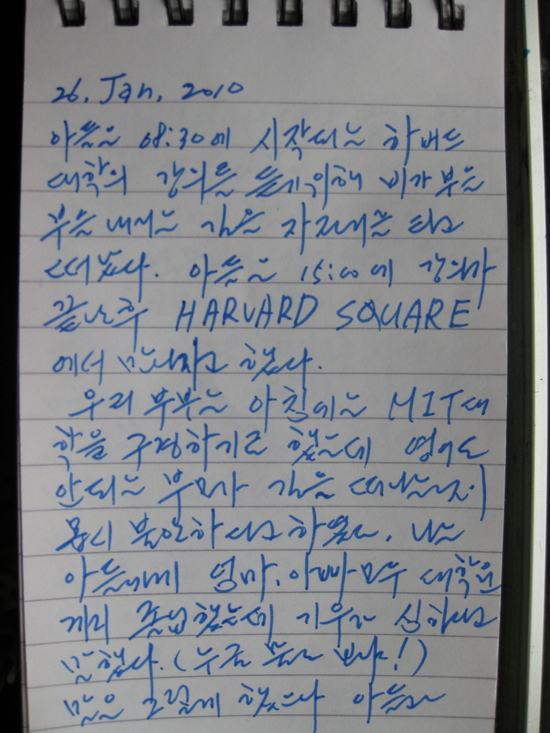 26. Jan, 2010
아들은 08:30에 시작되는 하버드
대학의 강의를 듣기위해 비가 부슬
부슬 내리는 길을 자전거를 타고
떠났다. 아들은 15:00에 강의가
끝난후 HARVARD SQUARE
에서 만나자고 했다.
우리 부부는 아침에는 MIT대
학을 구경하기로 했는데 영어도
안되는 부모가 길을 떠나는것이
몹시 불안하다고 하였다. 나는
아들에게 엄마, 아빠 모두 대학원
까지 졸업했는데 기우가 심하다고
말했다. (누굴 물로 보나!)
말은 그렇게 했으나 아들은